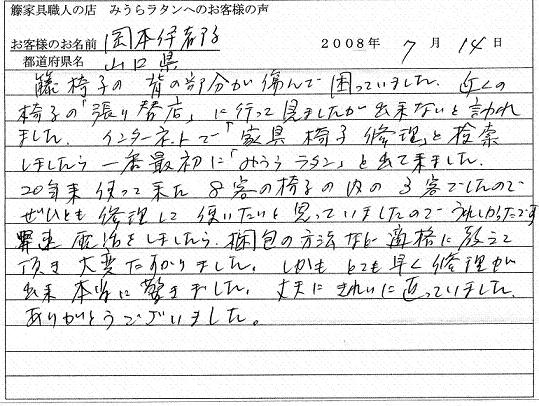 籐家具職人の店　みうらラタンへのお客様の声
お客様のお名前 岡本伊 2008年 7月14日
都道府県名 山口県
籐椅子の背の部分が傷んで困っていました。近くの
椅子の「張り替店」に行って見ましたが出来ないと言われ
ました。インターネットで「家具 椅子 修理」と検索
しましたら一番最初に「みうらラタン」と出て来ました。
20年来使って来た8客の椅子の内の3客でしたので
ぜひとも修理して使いたいと思っていましたのでうれしかったです
早速電話をしましたら、梱包の方法など適格に教えて
頂き大変たすかりました。しかもとても早く修理が
出来本当に驚きました。丈夫にきれいに直っていました。
ありがとうございました。